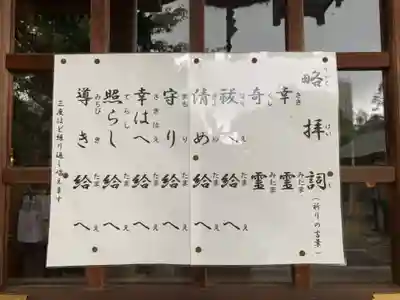 略拝詞(祈りの言葉)
幸霊
奇霊
祓へ給へ
清め給へ
守り給へ
幸はへ給へ
照らし給へ
導き給へ
三度ほど繰り返し唱えます